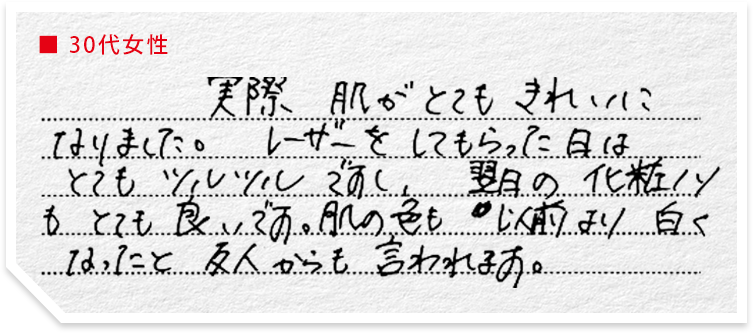 ■ 30代女性
実際、肌がとてもきれいに
なりました。レーザーをしてもらった日は
とてもツルツルですし、翌日の化粧ノリ
もとても良いです。肌の色も以前より白く
なったと友人からも言われます。